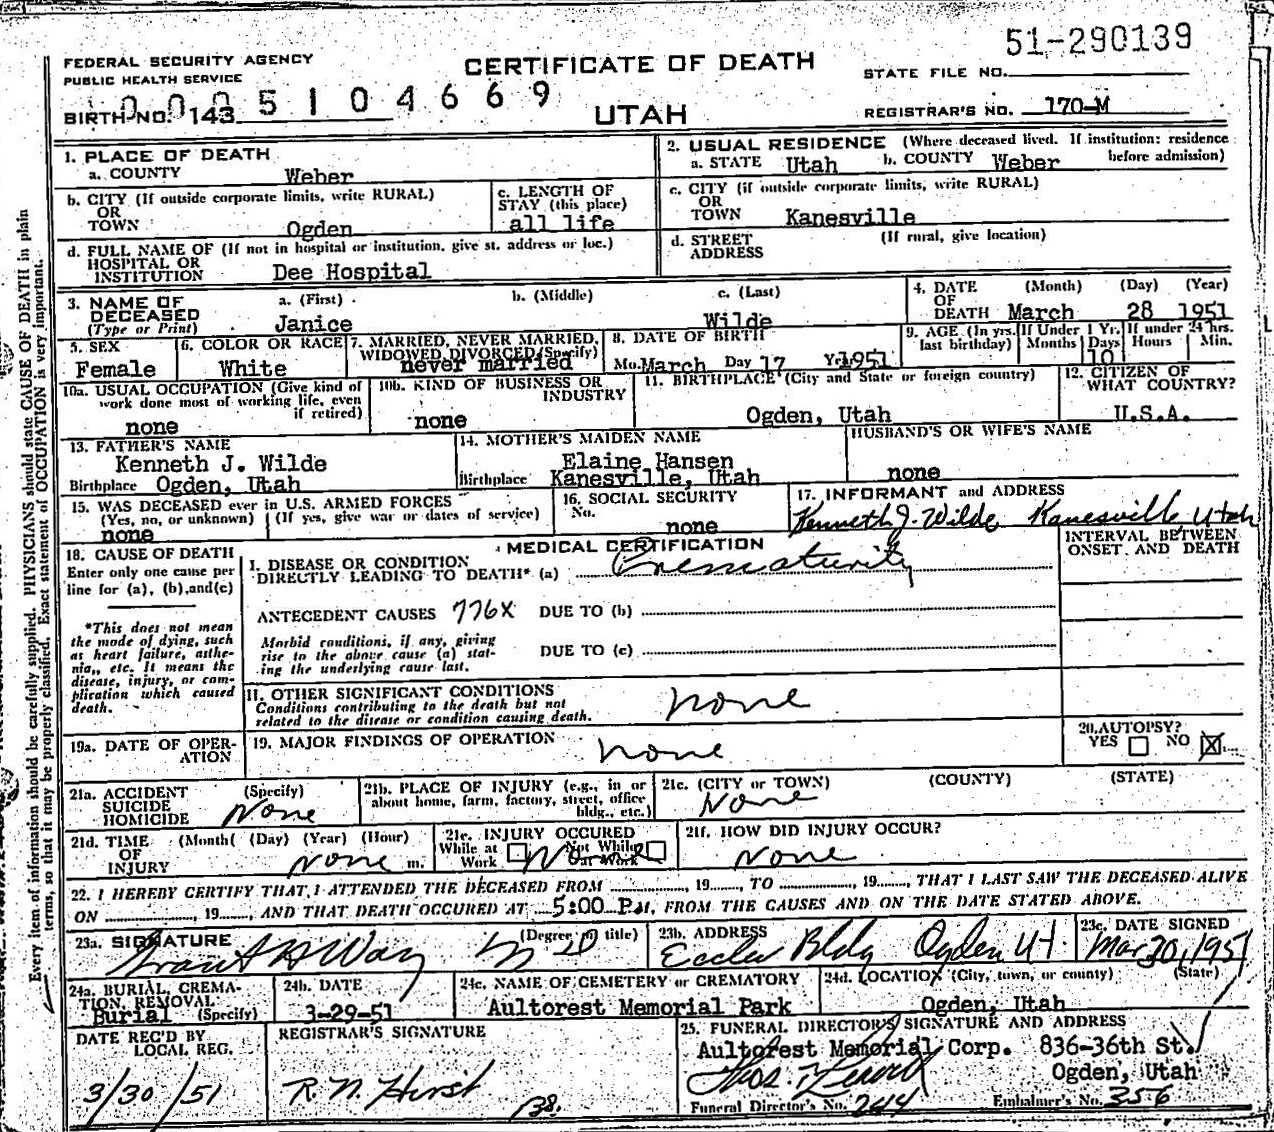 51-290139
FEDERAL SECURITY AGENCY
PUBLIC HEALTH SERVICE
CERTIFICATE OF DEATH
STATE FILE NO.
0005104669
BIRTH NO. 143
UTAH
REGISTRAR'S NO. 170-M
1. PLACE OF DEATH
a. COUNTY Weber
2. USUAL RESIDENCE (Where deceased lived. If institution: residence before admission)
a. STATE Utah b. COUNTY Weber
b. CITY (If outside corporate limits, write RURAL)
OR
TOWN Ogden
c. LENGTH OF
STAY (this place)
all life
c. CITY (if outside corporate limits, write RURAL)
OR
TOWN Kanesville
d. FULL NAME OF (If not in hospital or institution, give st. address or loc.)
HOSPITAL OR
INSTITUTION Dee Hospital
d. STREET (If rural, give location)
ADDRESS
3. NAME OF
DECEASED
(Type or Print)
a. (First) b. (Middle) c. (Last)
Janice Wilde
4. DATE
OF
DEATH
(Month) (Day) (Year)
March 28 1951
5. SEX
Female
6. COLOR OR RACE
White
7. MARRIED, NEVER MARRIED,
WIDOWED, DIVORCED (Specify)
never married
8. DATE OF BIRTH
Mo. March Day 17 Yr. 1951
9. AGE (In yrs.
last birthday)
If Under 1 Yr.
Months Days
10
If under 24 hrs.
Hours Min.
10a. USUAL OCCUPATION (Give kind of
work done most of working life, even
if retired)
none
10b. KIND OF BUSINESS OR
INDUSTRY
none
11. BIRTHPLACE (City and State or foreign country)
Ogden, Utah
12. CITIZEN OF
WHAT COUNTRY?
U.S.A.
13. FATHER'S NAME
Kenneth J. Wilde
Birthplace Ogden, Utah
14. MOTHER'S MAIDEN NAME
Elaine Hansen
Birthplace Kanesville, Utah
HUSBAND'S OR WIFE'S NAME
none
15. WAS DECEASED ever in U.S. ARMED FORCES
(Yes, no, or unknown) (If yes, give war or dates of service)
none
16. SOCIAL SECURITY
No.
none
17. INFORMANT and ADDRESS
Kenneth J. Wilde Kanesville, Utah
18. CAUSE OF DEATH
Enter only one cause per
line for (a), (b), and (c)
*This does not mean
the mode of dying, such
as heart failure, asthe-
nia, etc. It means the
disease, injury, or com-
plication which caused
death.
MEDICAL CERTIFICATION
INTERVAL BETWEEN
ONSET AND DEATH
I. DISEASE OR CONDITION
DIRECTLY LEADING TO DEATH* (a) Prematurity
ANTECEDENT CAUSES 776X DUE TO (b)
Morbid conditions, if any, giving
rise to the above cause (a) stat-
ing the underlying cause last.
DUE TO (c)
II. OTHER SIGNIFICANT CONDITIONS
Conditions contributing to the death but not
related to the disease or condition causing death.
none
19a. DATE OF OPER-
ATION
19. MAJOR FINDINGS OF OPERATION
none
20. AUTOPSY?
YES NO X
21a. ACCIDENT (Specify)
SUICIDE
HOMICIDE None
21b. PLACE OF INJURY (e.g., in or
about home, farm, factory, street, office
bldg., etc.)
21c. (CITY or TOWN) (COUNTY) (STATE)
None
21d. TIME (Month) (Day) (Year) (Hour)
OF
INJURY none m.
21e. INJURY OCCURED
While at Work Not While at Work
None
21f. HOW DID INJURY OCCUR?
None
22. I HEREBY CERTIFY THAT I ATTENDED THE DECEASED FROM ______, 19____, TO ______, 19____, THAT I LAST SAW THE DECEASED ALIVE
ON ______, 19____, AND THAT DEATH OCCURED AT 5:00 P.M., FROM THE CAUSES AND ON THE DATE STATED ABOVE.
23a. SIGNATURE (Degree or title)
Grant H Way M D
23b. ADDRESS
Eccles Bldg Ogden Ut
23c. DATE SIGNED
Mar 30, 1951
24a. BURIAL, CREMA-
TION, REMOVAL
(Specify) Burial
24b. DATE
3-29-51
24c. NAME OF CEMETERY or CREMATORY
Aultorest Memorial Park
24d. LOCATION (City, town, or county) (State)
Ogden, Utah
DATE REC'D BY
LOCAL REG.
3/30/51
REGISTRAR'S SIGNATURE
R. N. Hirst
25. FUNERAL DIRECTOR'S SIGNATURE AND ADDRESS
Aultorest Memorial Corp. 836-36th St.
Ogden, Utah
Funeral Director's No. 244
Embalmer's No. 356
Every item of information should be carefully supplied. PHYSICIANS should state CAUSE OF DEATH in plain
terms, so that it may be properly classified. Exact statement of OCCUPATION is very important.